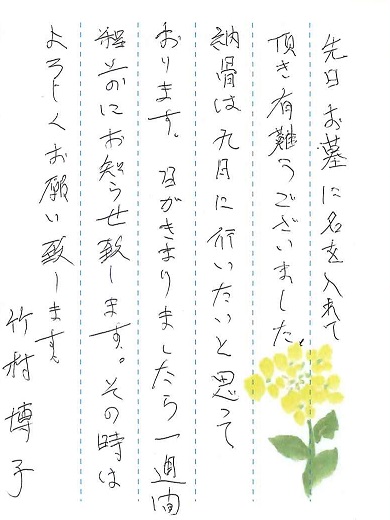 先日お墓に名を入れて
頂き有難うございました。
納骨は九月に行いたいと思って
おります。日がきまりましたら一週間
程前にお知らせ致します。その時は
よろしくお願い致します。
竹村博子